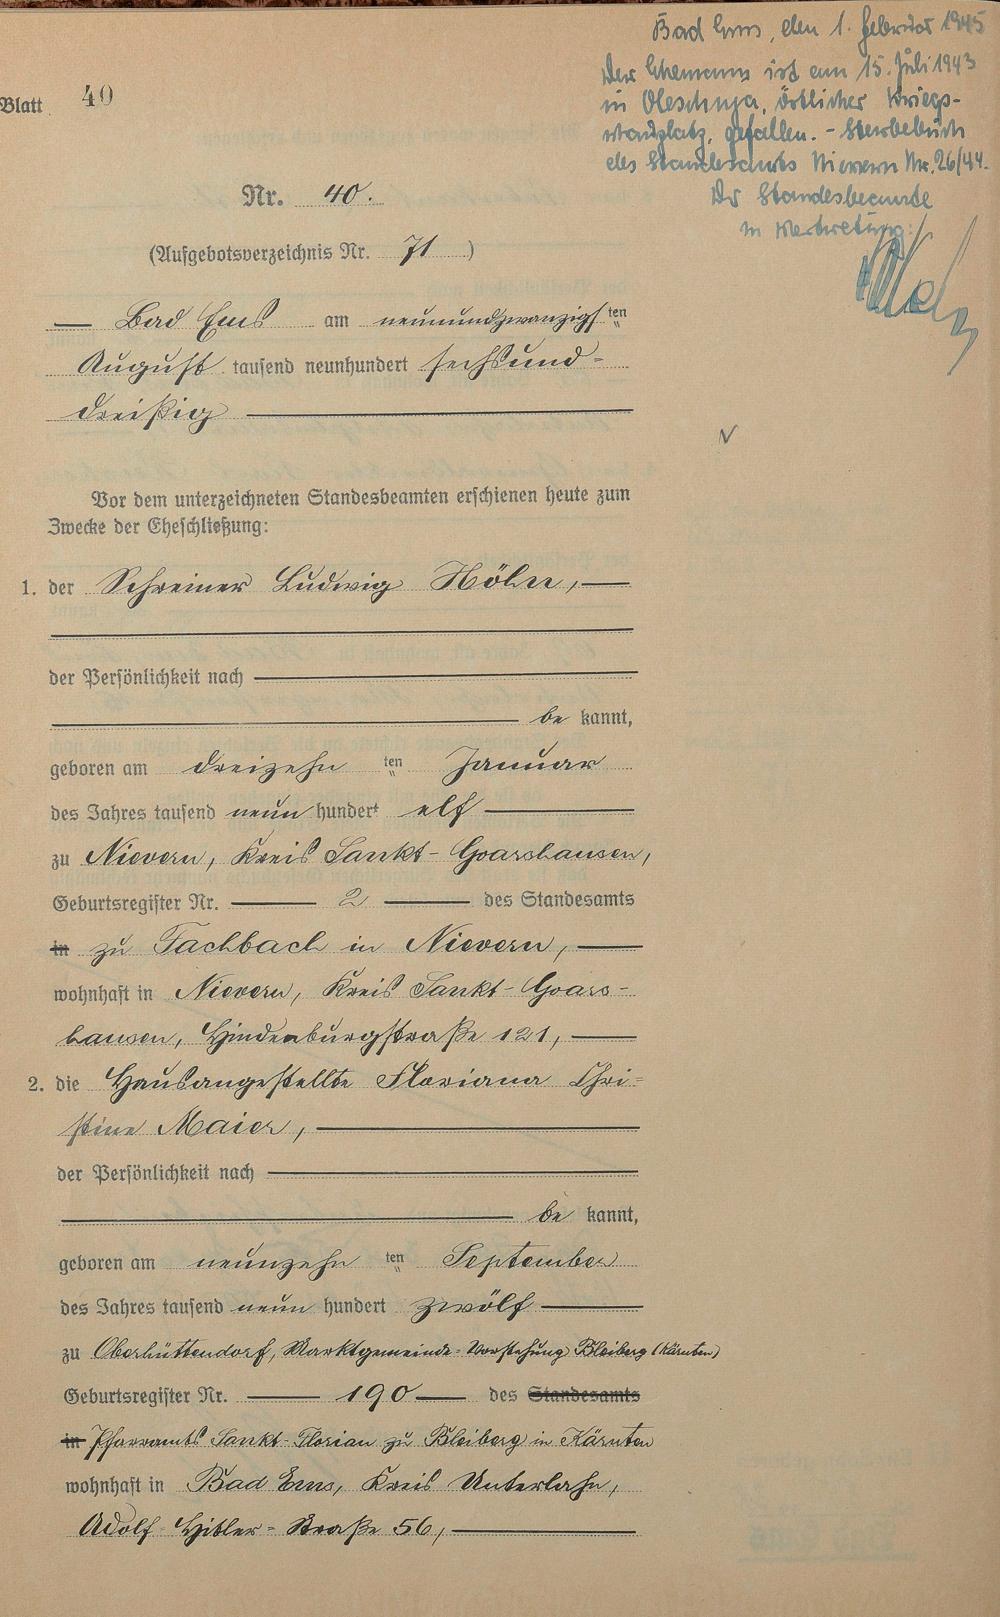 Bad Ems, den 1. Februar 1945
Der Ehemann ist am 15. Juli 1943
in Oleschnja, örtlicher Kriegs-
schauplatz, gefallen. - Sterbebuch
des Standesamts Nievern Nr. 26/44.
Der Standesbeamte
in Vertretung:
Blatt 40
Nr. 40.
(Aufgebotsverzeichnis Nr. 71)
Bad Ems am neunundzwanzigsten
August tausend neunhundert sechsund-
dreißig
Vor dem unterzeichneten Standesbeamten erschienen heute zum
Zwecke der Eheschließung:
1. der Schreiner Ludwig Höhn,
der Persönlichkeit nach
be kannt,
geboren am dreizehn ten Januar
des Jahres tausend neun hundert elf
zu Nievern, Kreis Sankt-Goarshausen,
Geburtsregister Nr. 2 des Standesamts
in zu Fachbach in Nievern,
wohnhaft in Nievern, Kreis Sankt-Goars-
hausen, Hindenburgstraße 121,
2. die Hausangestellte Floriana Chri-
stine Maier,
der Persönlichkeit nach
be kannt,
geboren am neunzehn ten September
des Jahres tausend neun hundert zwölf
zu Oberhüttendorf, Marktgemeinde-Vorstehung Bleiberg (Kärnten)
Geburtsregister Nr. 190 des Standesamts
in Pfarramts Sankt-Florian zu Bleiberg in Kärnten
wohnhaft in Bad Ems, Kreis Unterlahn,
Adolf Hitler-Straße 56,